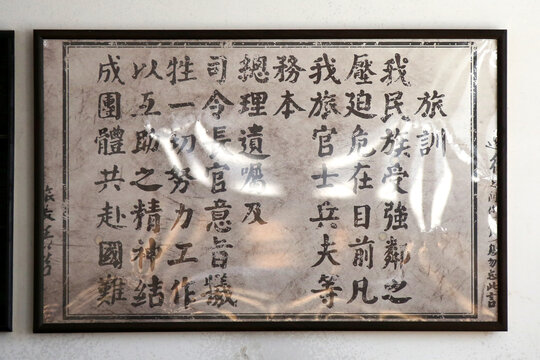 旅訓
我民族受強鄰之
壓迫危在目前凡
我旅官士兵夫等
務本
總理遺囑及
司令長官意旨犧
牲一切努力工作
以互助之精神結
成團體共赴國難